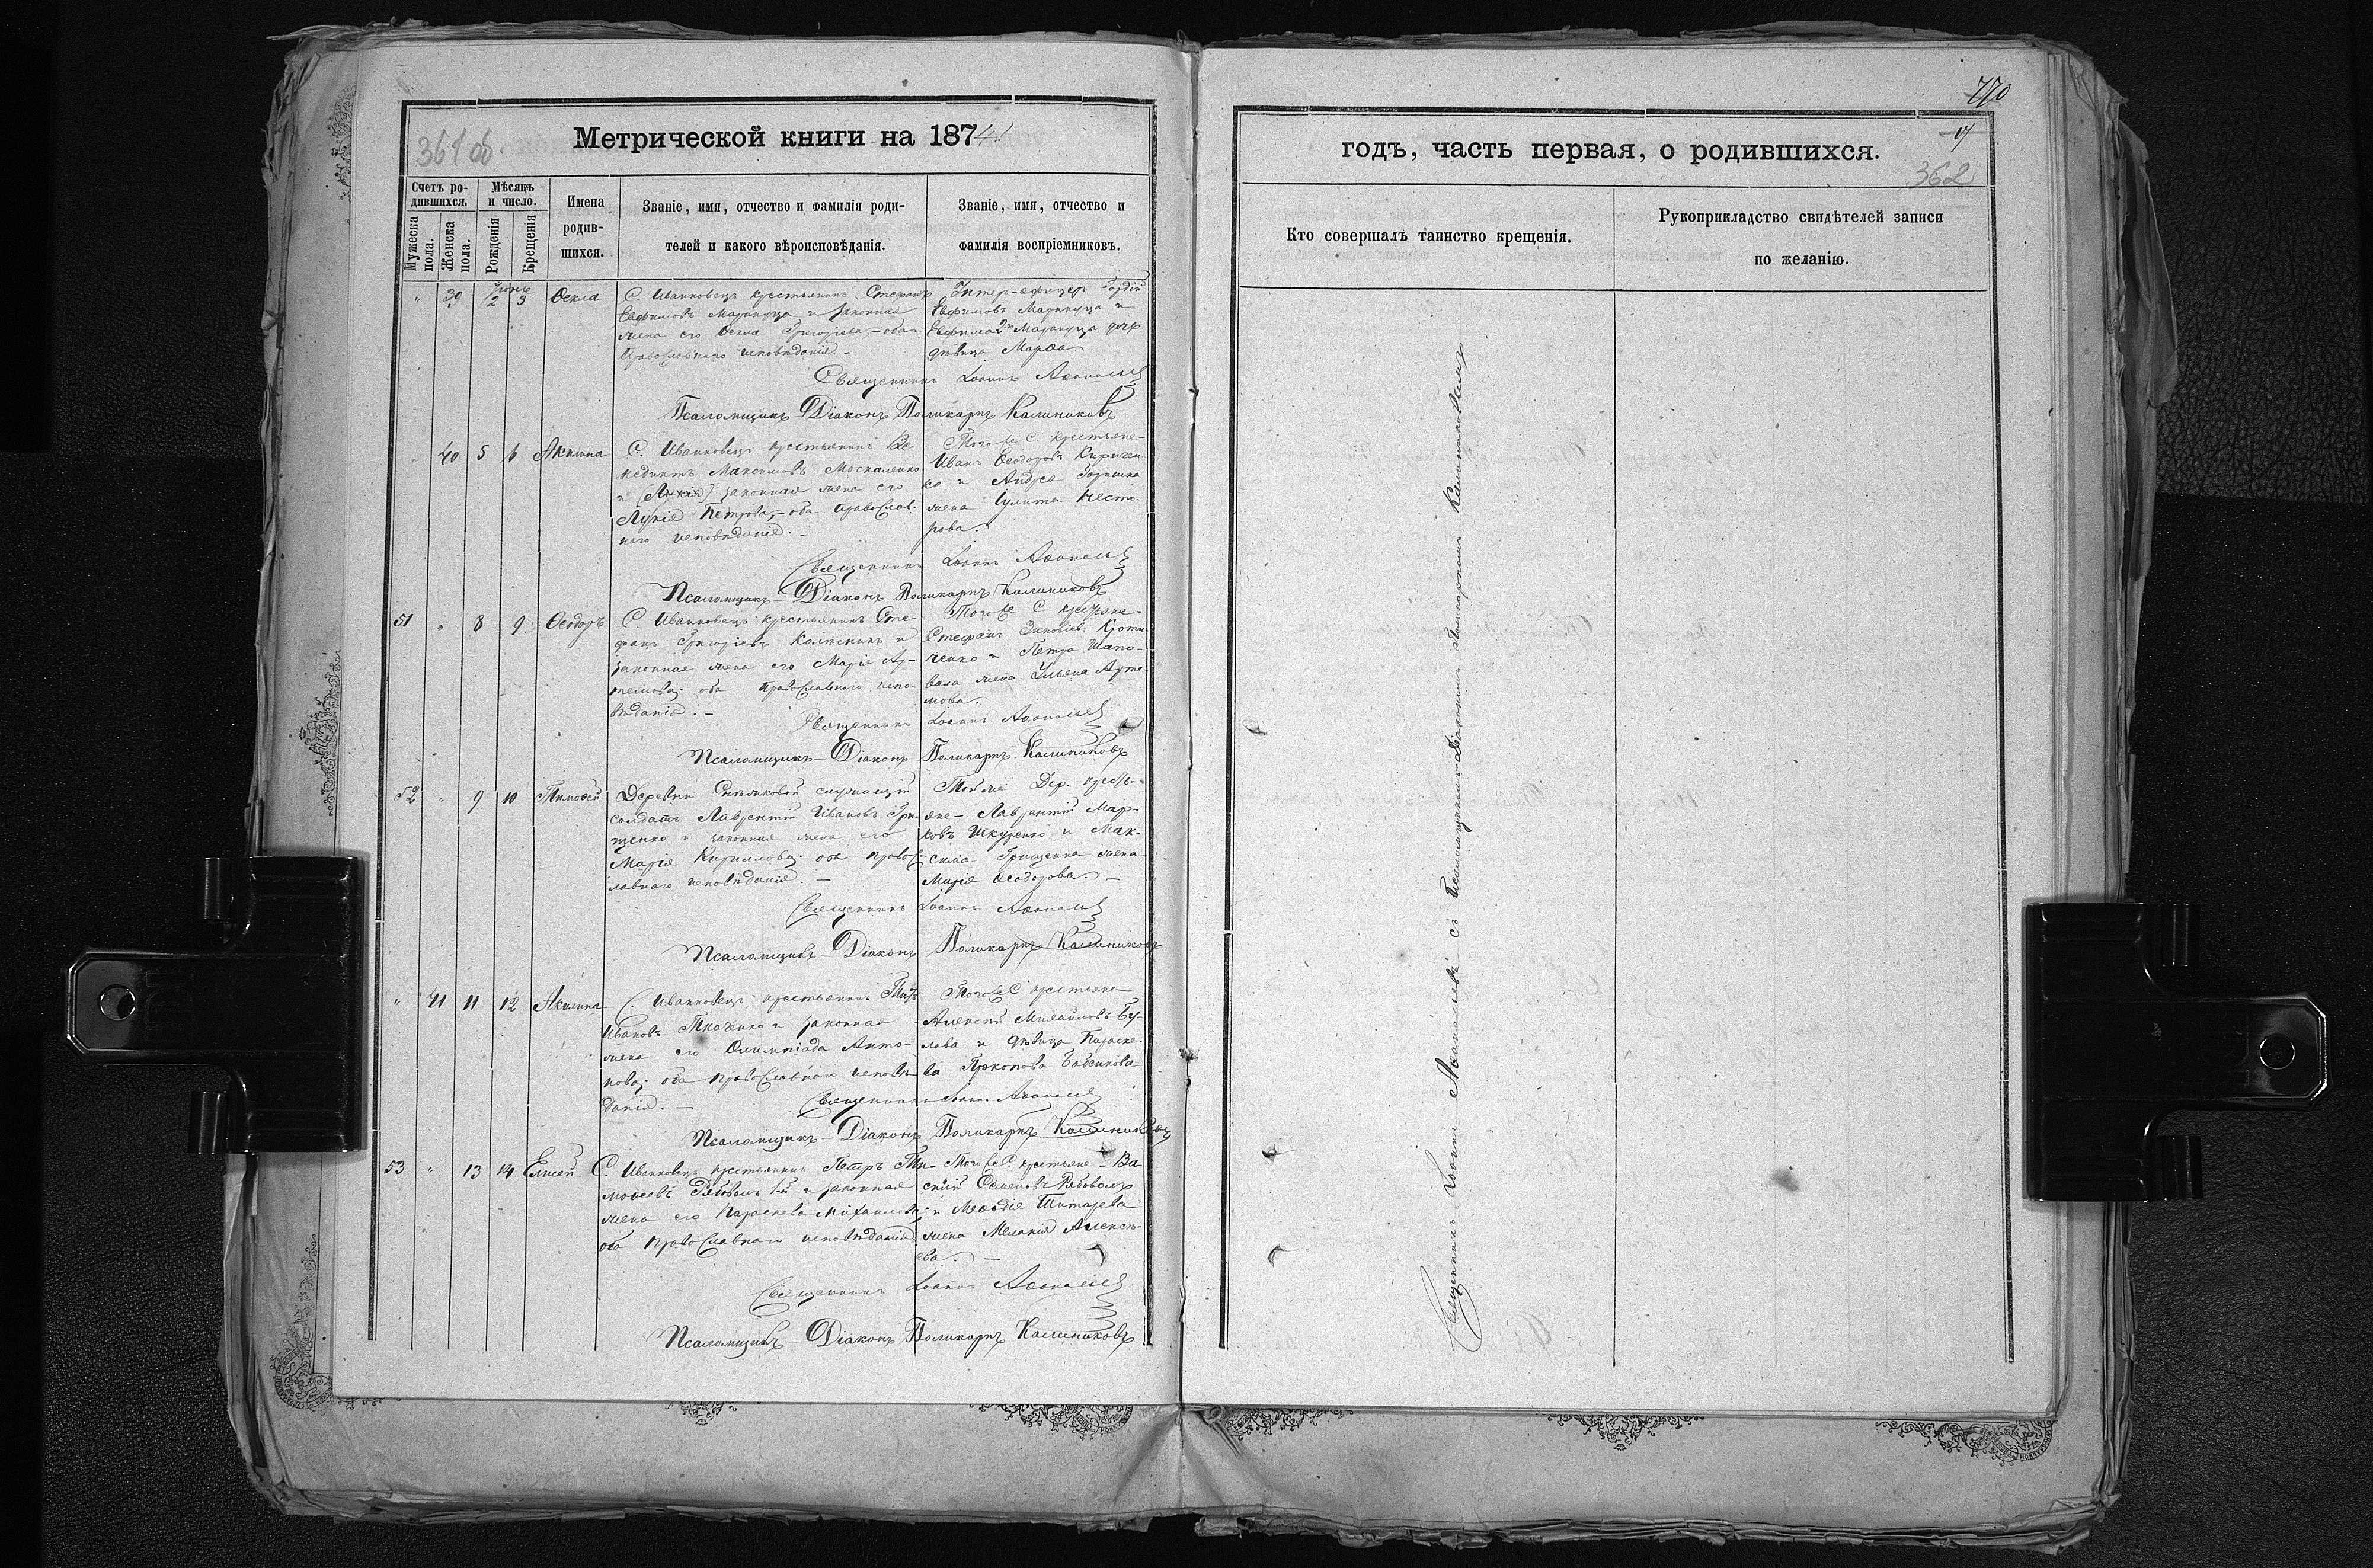 361 об.
Метрической книги на 1874
Счетъ ро-
дившихся.
Мужеска
пола.
Женска
пола.
Мѣсяцъ
и число.
Рожденія
Крещенія
Имена
родив-
шихся.
Званіе, имя, отчество и фамилія роди-
телей и какого вѣроисповѣданія.
Званіе, имя, отчество и
фамилія воспріемниковъ.
" 39 2 3 Ѳекла
С. Иванковецъ крестьянинъ Стефанъ
Евфимовъ и законная
жена его Ѳекла Григорьева, – оба
Православнаго исповѣданія. –
Унтер-офицер Гордій
Евфимовъ и
Евфима дочь
дѣвица Марѳа
Священникъ Іоаннъ Аѳанасьев
Псаломщикъ Діаконъ Поликарпъ Калиниковъ
40 5 6 Акилина
С. Иванковецъ крестьянинъ Ве-
недиктъ Максимовъ Москаленко
и (Лукія) законная жена его
Лукія Петрова, – оба православ-
наго исповѣданія. –
Того же С. крестьяне –
Иванъ Ѳеодоровъ Киричен-
ко и Андрея
жена Іулита Несто-
рова. –
Священникъ Іоаннъ Аѳанасьев
Псаломщикъ – Діаконъ Поликарпъ Калиниковъ
51 " 8 9 Ѳеодоръ
С. Иванковецъ крестьянинъ Сте-
фанъ Григоріевъ и
законная жена его Марія Ар-
темова; оба Православнаго испо-
вѣданія. –
Того же С. крестьяне –
Стефанъ Зиновіев.
ченко и Петра Шапо-
вала жена Ульяна Арте-
мова.
Священникъ Іоаннъ Аѳанасьев
Псаломщикъ – Діаконъ Поликарпъ Калиниковъ
52 " 9 10 Тимоѳей
Деревни служащій
солдатъ Лаврентій Ивановъ Гри-
щенко и законная жена его
Марія Кириллова; оба правос-
лавнаго исповѣданія. –
Той же Дер. кресть-
яне – Лаврентій Мар-
ковъ Шкуренко и Мак-
сима Грищенка жена
Марія Ѳеодорова. –
Священникъ Іоаннъ Аѳанасьев
Псаломщикъ – Діаконъ Поликарпъ Калиниковъ
" 41 11 12 Акилина
С. Иванковецъ крестьянинъ Титъ
Ивановъ Ткаченко и законная
жена его Олимпіада Анто-
нова; оба православнаго исповѣ-
данія. –
Того же С. крестьяне
Алексѣй Михайловъ Бу-
лава и дѣвица Параске-
ва Прокопова
Священникъ Іоаннъ Аѳанасьев
Псаломщикъ – Діаконъ Поликарпъ Калиниковъ
53 " 13 14 Елисей
С. Иванковецъ крестьянинъ Петръ Ти-
моѳеевъ Рябоволъ 1-й и законная
жена его Параскева Михайлова;
оба православнаго исповѣданія
Того же С. крестьяне – Ва-
силій Семеновъ Рябоволъ
и Меѳодія Титарева
жена Меланія Алексѣ-
ева. –
Священникъ Іоаннъ Аѳанасьев
Псаломщикъ – Діаконъ Поликарпъ Калиниковъ
770
годъ, часть первая, о родившихся.
362
Кто совершалъ таинство крещенія.
Рукоприкладство свидѣтелей записи
по желанію.
Священникъ Іоаннъ Аѳанасьевъ съ Псаломщикомъ-Діакономъ Поликарпомъ Калиниковымъ